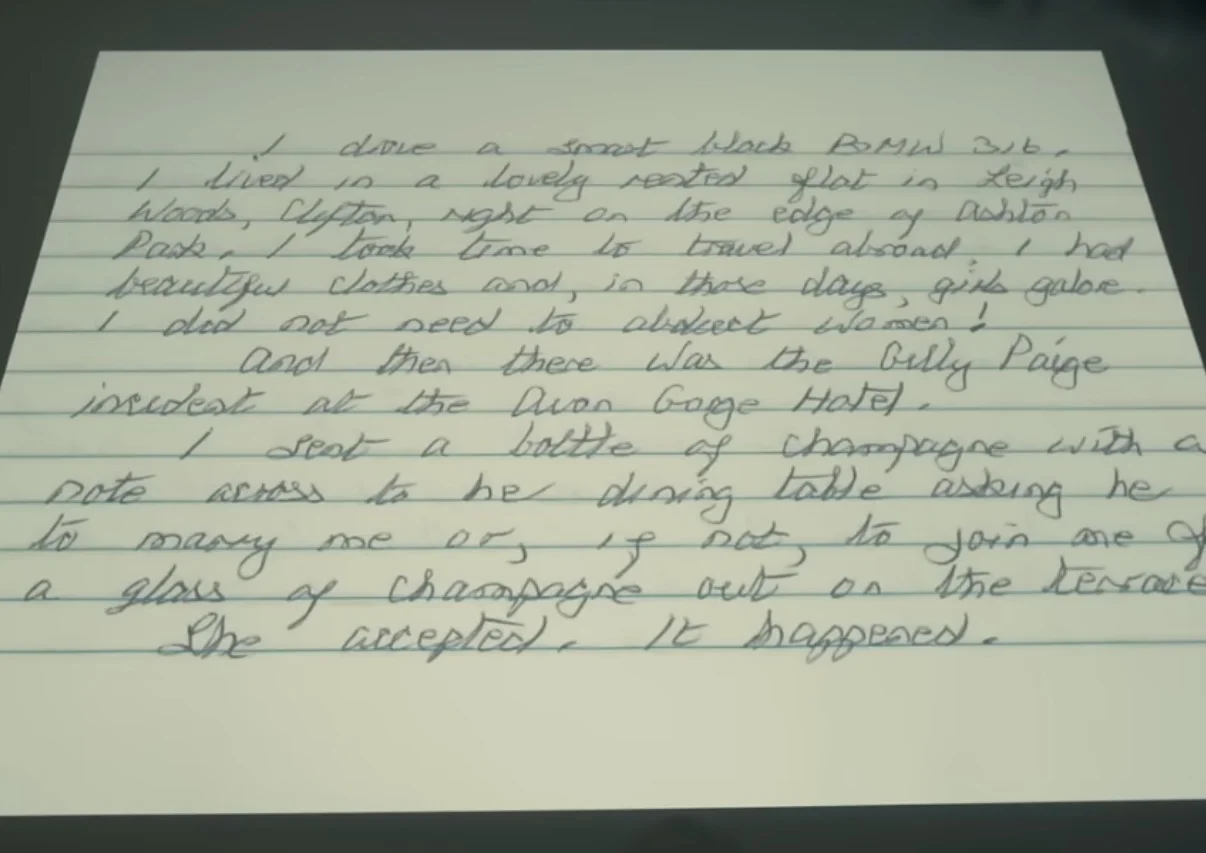 I drove a smart black BMW 316.
I lived in a lovely rented flat in Leigh
Woods, Clifton, right on the edge of Ashton
Park. I took time to travel abroad. I had
beautiful clothes and, in those days, girls galore.
I did not need to abduct women!
And then there was the Gilly Paige
incident at the Avon Gorge Hotel.
I sent a bottle of champagne with a
note across to her dining table asking her
to marry me or, if not, to join me of
a glass of champagne out on the terrace
She accepted. It happened.